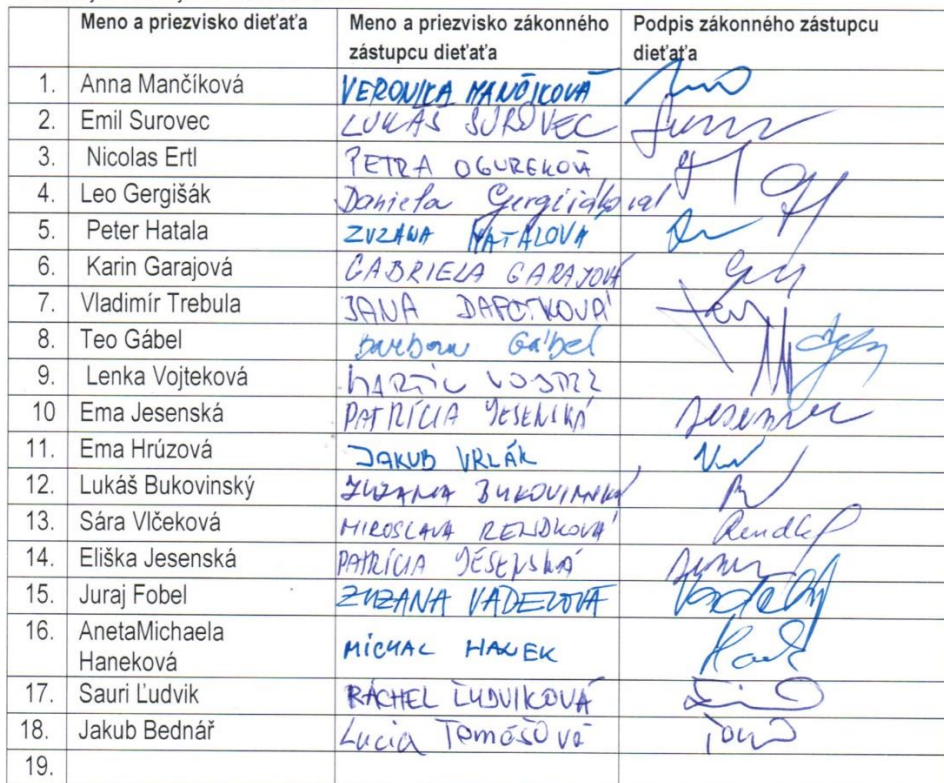 Meno a priezvisko dieťaťa Meno a priezvisko zákonného zástupcu dieťaťa Podpis zákonného zástupcu dieťaťa
1. Anna Mančíková VERONIKA MANČIKOVÁ
2. Emil Surovec LUKÁŠ SUROVEC
3. Nicolas Ertl PETRA OGUREKOVÁ
4. Leo Gergišák Daniela Gergišáková
5. Peter Hatala ZUZANA HATALOVÁ
6. Karin Garajová GABRIELA GARAJOVÁ
7. Vladimír Trebula JANA
8. Teo Gábel Barbora Gábel
9. Lenka Vojteková
10 Ema Jesenská PATRÍCIA JESENSKÁ
11. Ema Hrúzová JAKUB VRLÁK
12. Lukáš Bukovinský ZUZANA BUKOVINSKÁ
13. Sára Vlčeková MIROSLAVA RENDKOVÁ
14. Eliška Jesenská PATRÍCIA JESENSKÁ
15. Juraj Fobel ZUZANA VADELOVÁ
16. AnetaMichaela
Haneková MICHAL HANEK
17. Sauri Ľudvik RÁCHEL ĽUDVIKOVÁ
18. Jakub Bednář Lucia Tomášová
19.